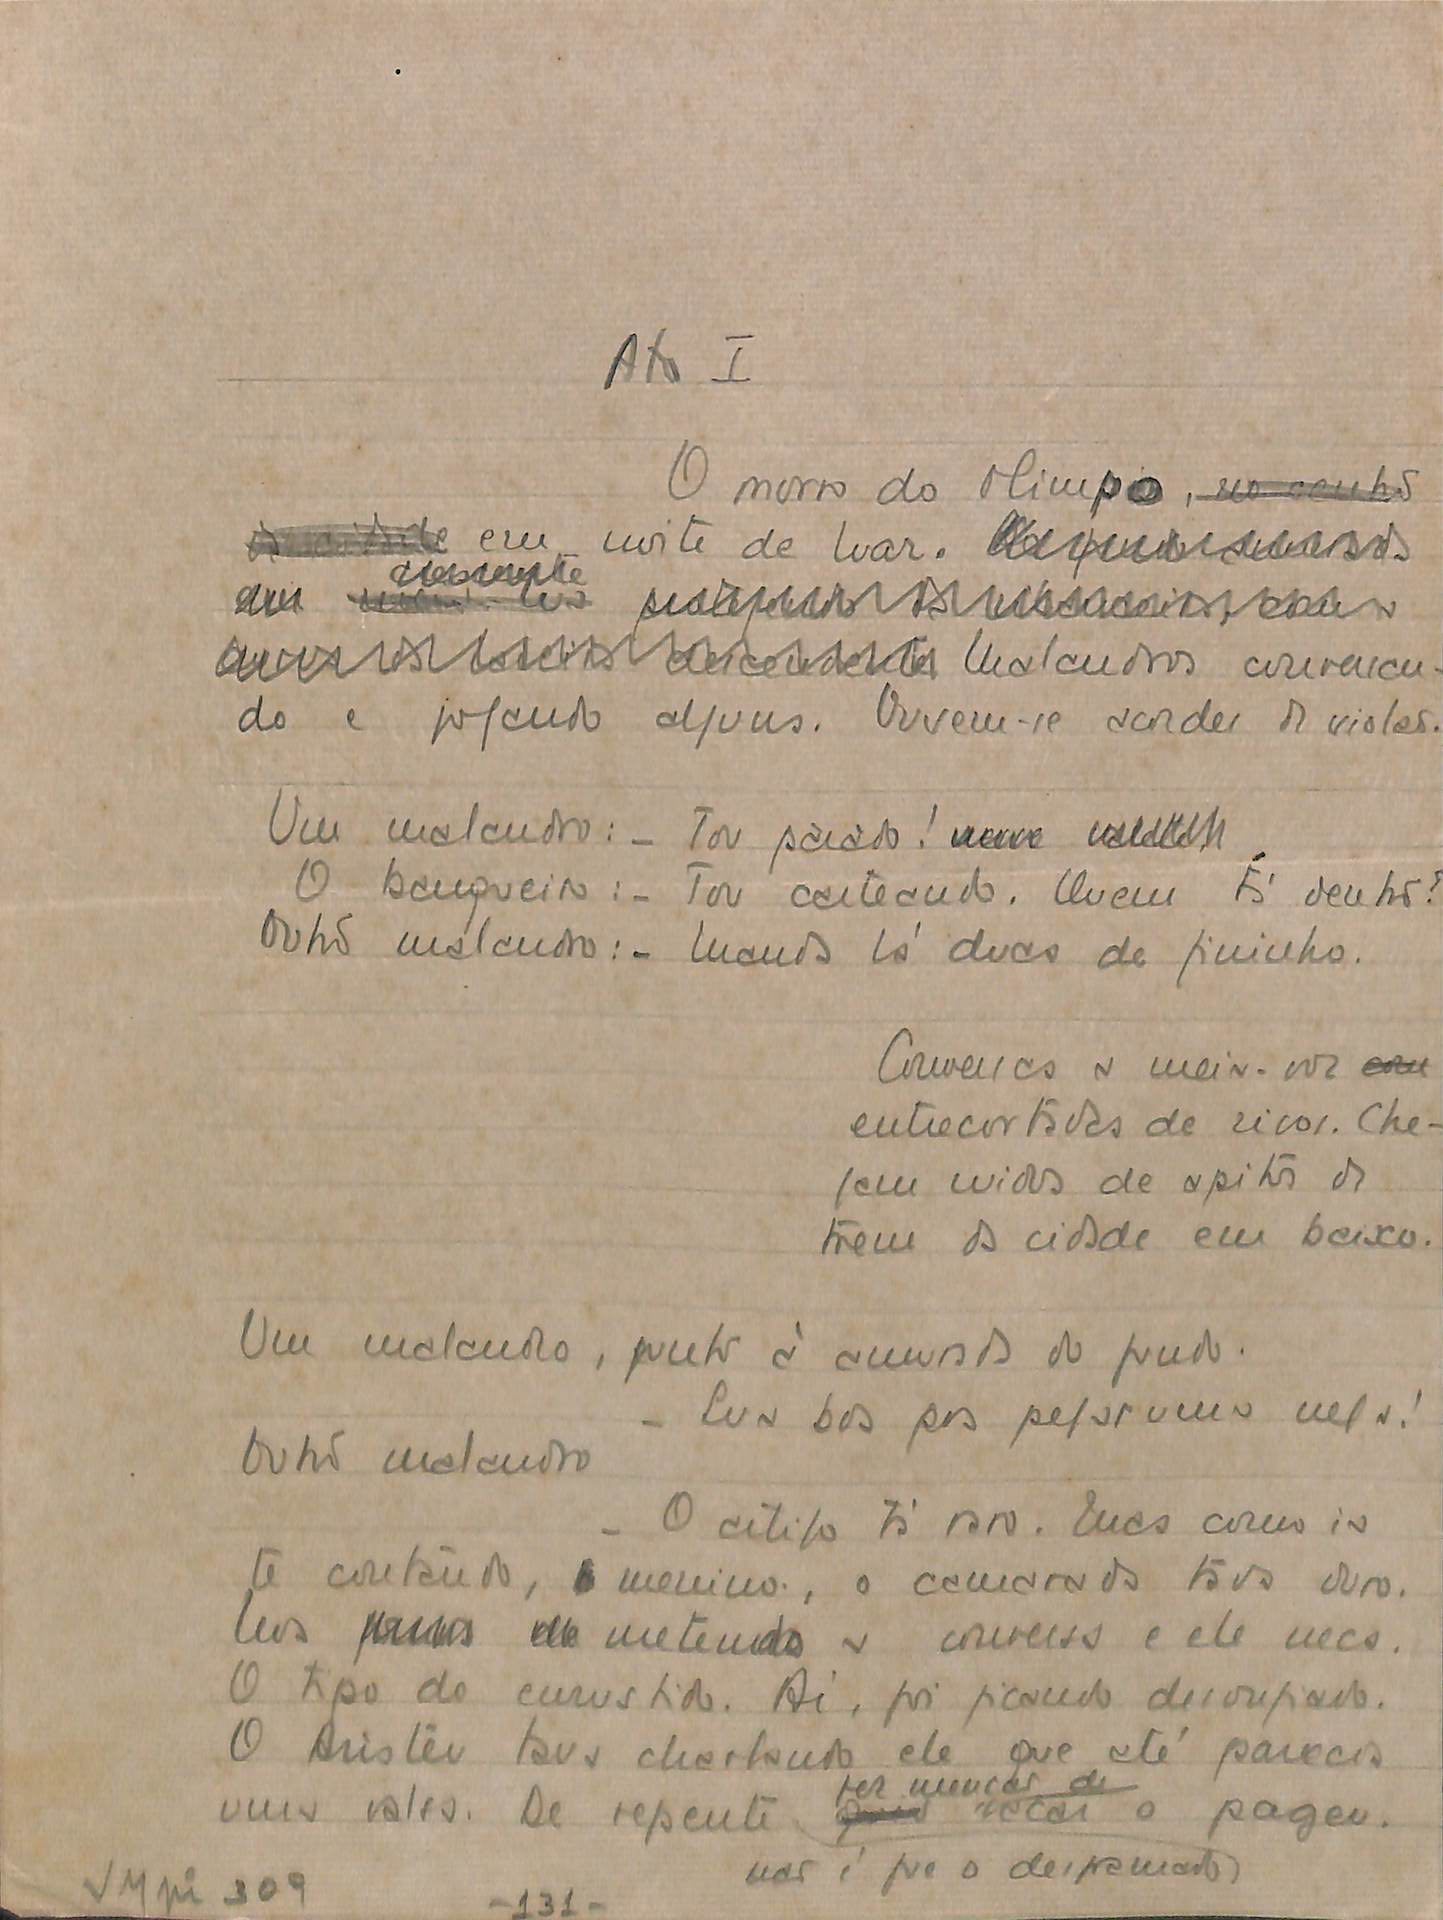 Ato I
O morro do Olimpo, no centro
da cidade em noite de luar.
crescente
Malandros conversan-
do e jogando alguns. Ouvem-se acordes de violão.
Um malandro: - Tou parado!
O banqueiro: - Tou carteando. Quem tá dentro?
Outro malandro: - Manda lá duas de fininho.
Conversas a meia-voz com
entrecortadas de risos. Che-
gam ruidos de apitos de
trem da cidade em baixo.
Um malandro, junto à amurada do fundo.
- Lua boa pra pegar uma nêga!
Outro malandro
- O artigo tá raro. Mas como ia
te contando, menino, o camarada tava duro.
Nos metendo a conversa e ele neca.
O tipo do enrustido. Aí, foi ficando desconfiado.
O Aristeu tava chaleando ele que até parecia
uma valsa. De repente
ter menção de
puxar o pageu.
nas é que o desgramado
VM pi 309
-131-